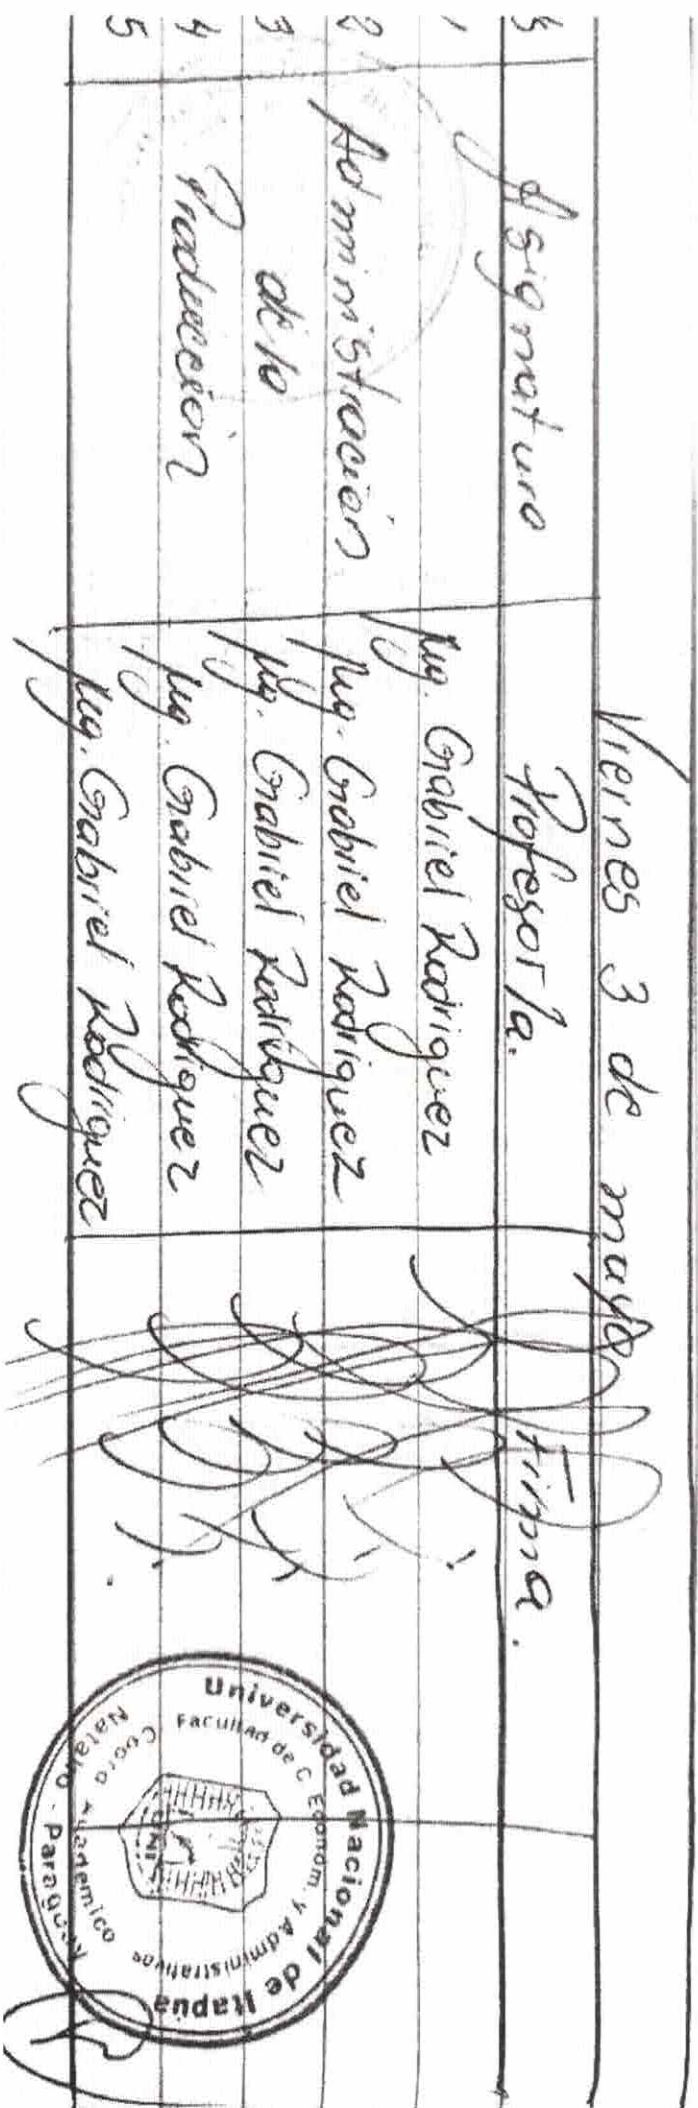 Viernes 3 de mayo
Asignatura Profesor/a. Firma.
1 Mg. Gabriel Rodriguez
2 Administración Mg. Gabriel Rodriguez
3 de la Mg. Gabriel Rodriguez
4 Producción Mg. Gabriel Rodriguez
5 Mg. Gabriel Rodriguez
Universidad Nacional de Itapúa
Facultad de C. Económ. y Administrativas
Coord Académico
Natalio - Paraguay